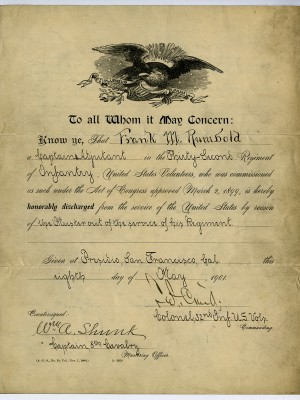 To all Whom it May Concern:
Know ye, That Frank M. Rumbold
a Captain & Adjutant in the Thirty-Second Regiment
of Infantry, United States Volunteers, who was commissioned
as such under the Act of Congress approved March 2, 1899, is hereby
honorably discharged from the service of the United States by reason
of the Muster out of the service of his Regiment.
Given at Presidio, San Francisco, Cal. this
eighth day of May 1901
Colonel, 32nd Inf. U.S. Vols.
Commanding.
Countersigned:
Wm A. Shunk
Captain 8th Cavalry
Mustering Officer.